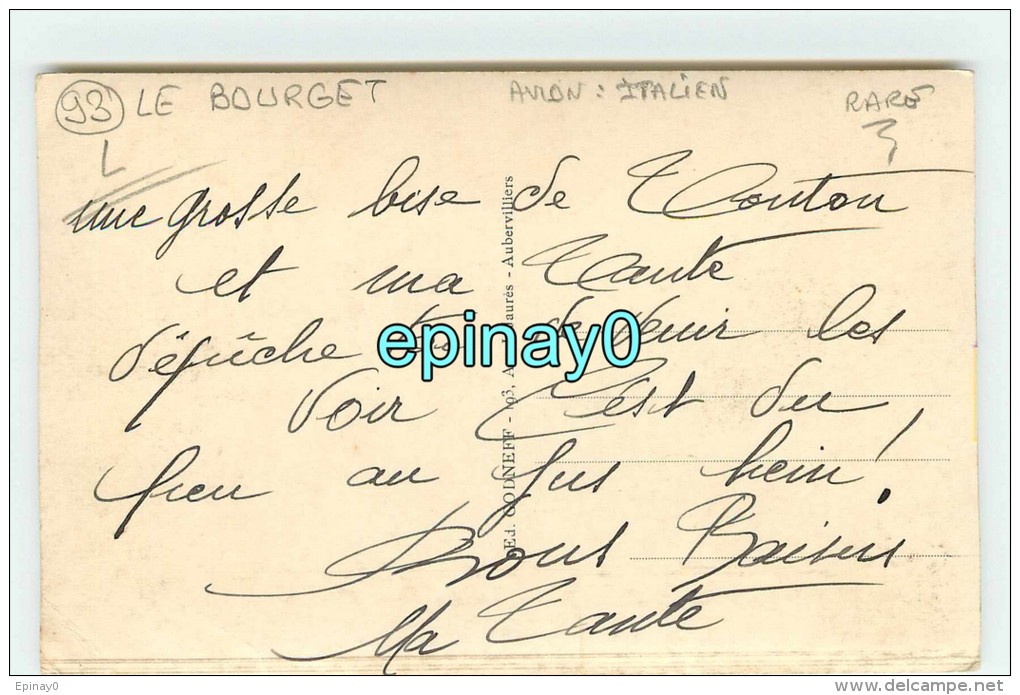 93 LE BOURGET AVION : ITALIEN RARE
une grosse bise de Tonton
et ma Tante
Dépêche toi de venir les
voir C'est du
feu au jus hein !
Bons Baisers
Ma Tante
Ed. GODNEFF - 193, A Jaurès - Aubervilliers
epinay0
Epinay0
www.delcampe.net